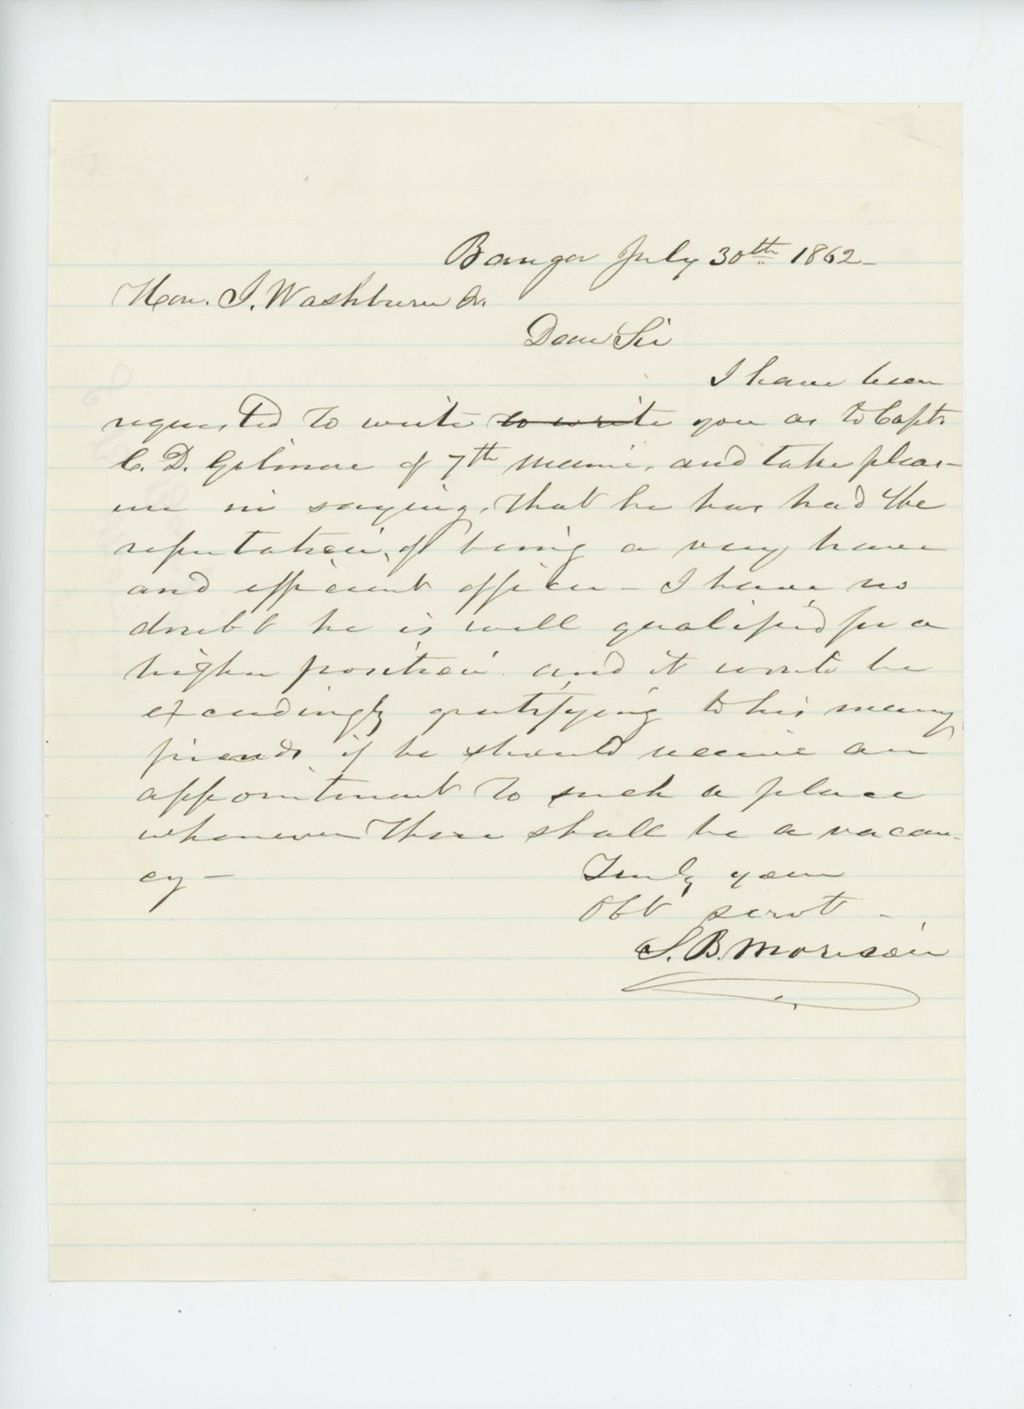 Bangor July 30th 1862-
Hon. I. Washburn Jr.
Dear Sir
I have been
requested to write to write you as to Capt.
C. D. Gilmore of 7th Maine, and take pleas-
ure in saying, that he has had the
reputation, of being a very brave
and efficient officer - I have no
doubt he is well qualified for a
higher position and it would be
exceedingly gratifying to his many
friends if he should receive an
appointment to such a place
whenever there shall be a vacan-
cy-
Truly your
Obt servt -
S. B. Morison